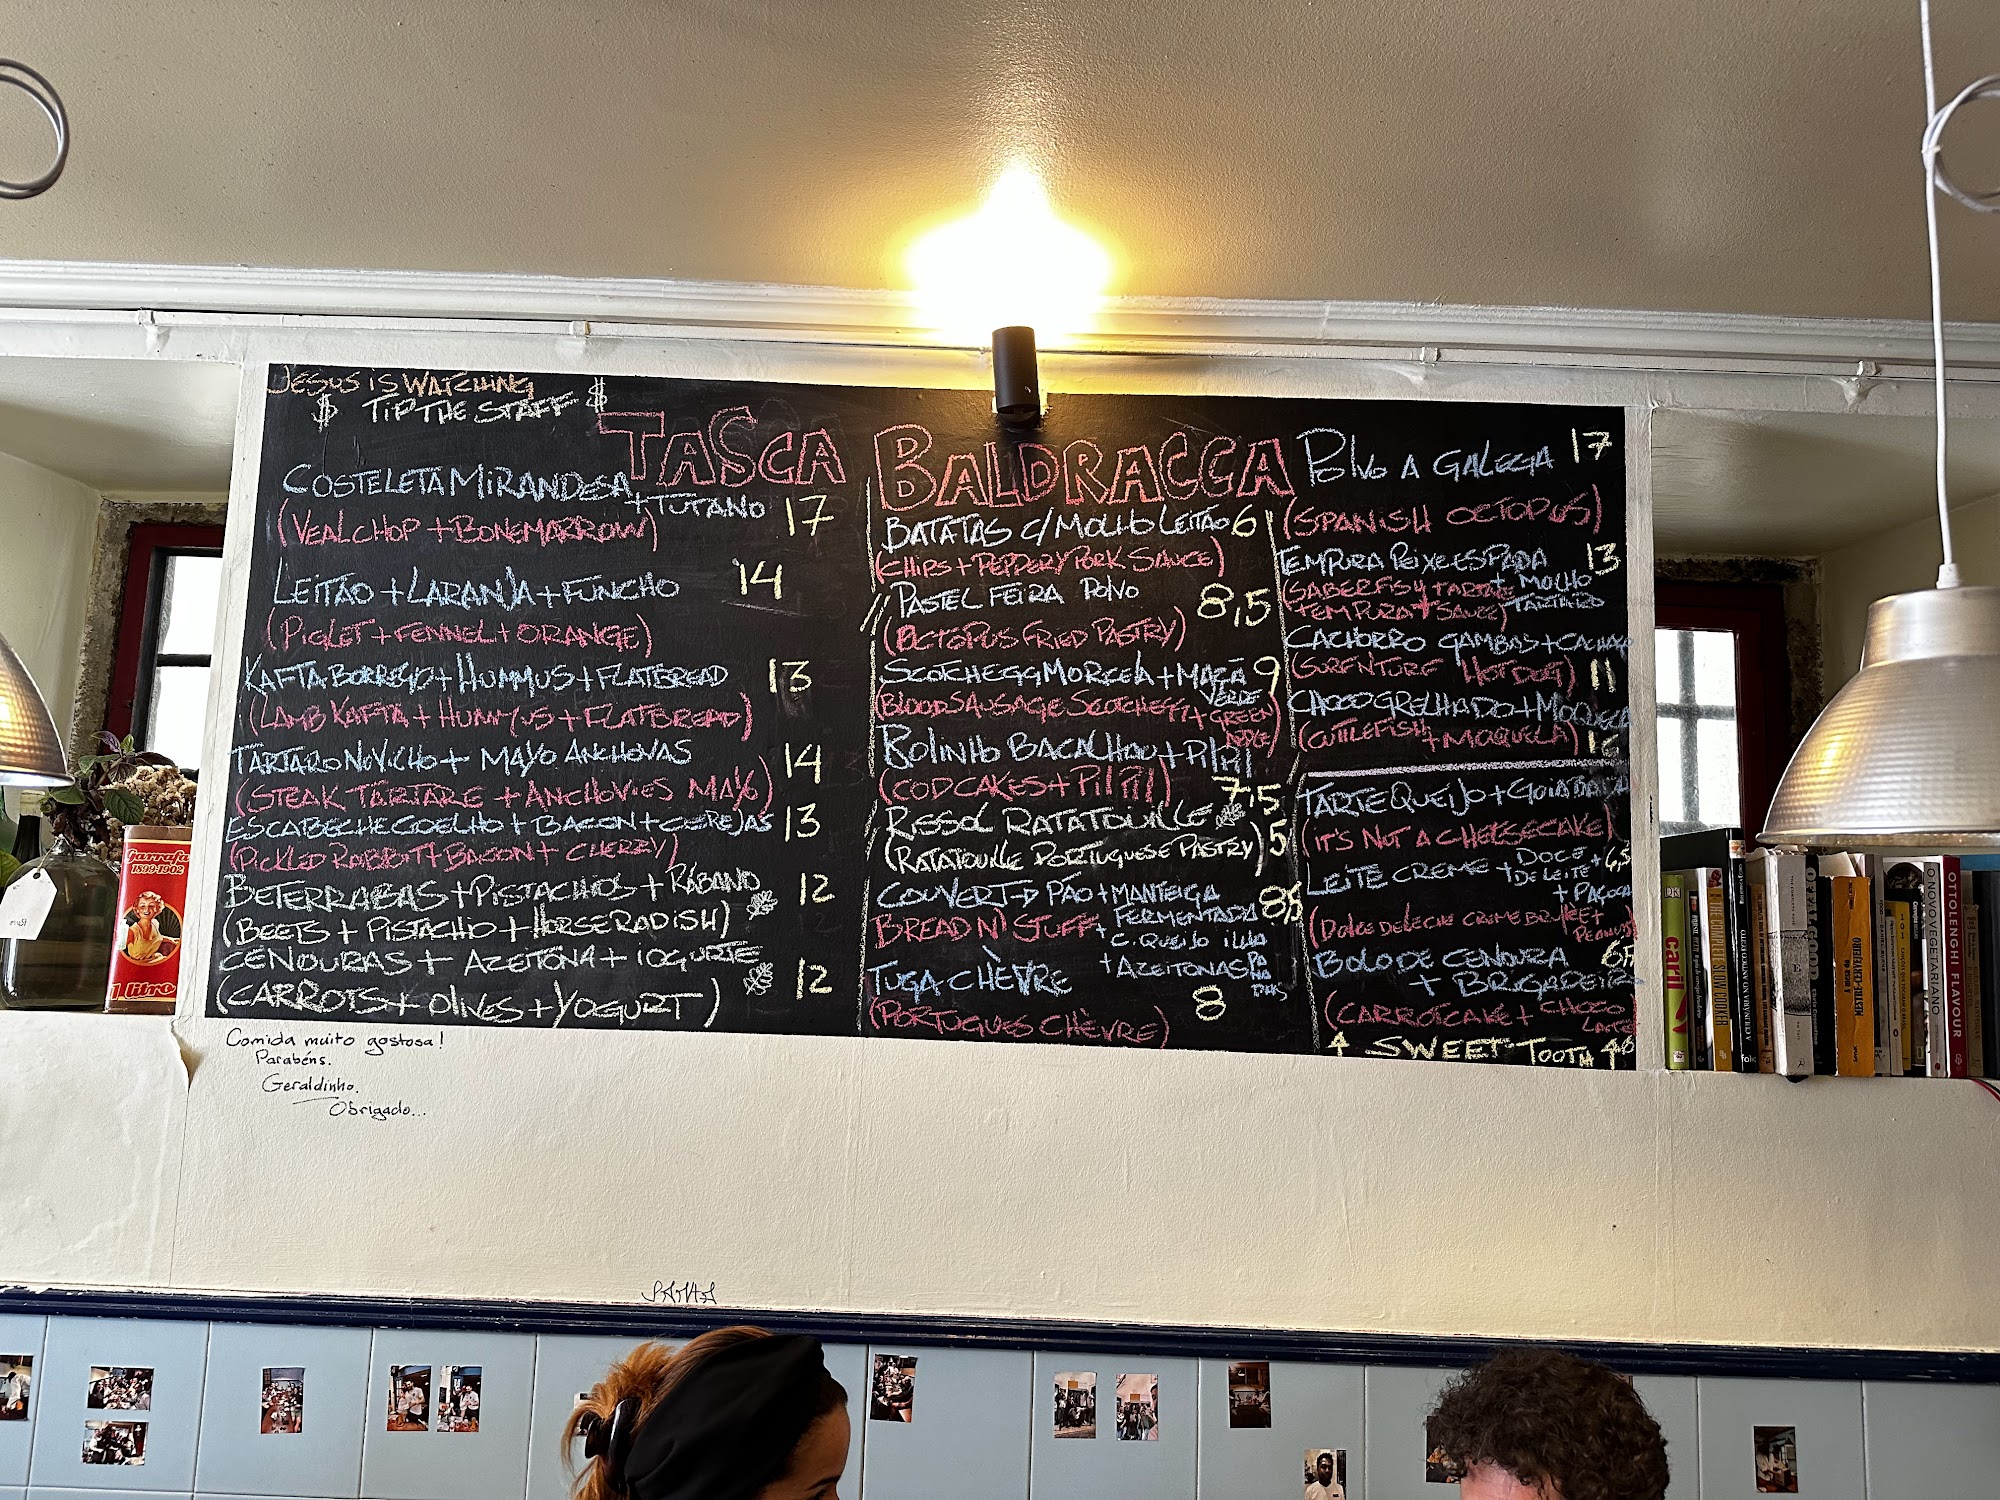 JESUS IS WATCHING
$ TIP THE STAFF $
TASCA BALDRACCA
COSTELETA MIRANDESA
+ TUTANO 17
(VEAL CHOP + BONEMARROW)
LEITÃO + LARANJA + FUNCHO 14
(PIGLET + FENNEL + ORANGE)
KAFTA BORREGO + HUMMUS + FLATBREAD 13
(LAMB KAFTA + HUMMUS + FLATBREAD)
TÁRTARO NOVILHO + MAYO ANCHOVAS 14
(STEAK TARTARE + ANCHOVIES MAYO)
ESCABECHE COELHO + BACON + CEREJAS 13
(PICKLED RABBIT + BACON + CHERRY)
BETERRABAS + PISTACHIOS + RÁBANO 12
(BEETS + PISTACHIO + HORSERADISH)
CENOURAS + AZEITONA + IOGURTE 12
(CARROTS + OLIVES + YOGURT)
BATATAS C/ MOLHO LEITÃO 6
(CHIPS + PEPPERY PORK SAUCE)
PASTEL FEIRA POLVO 8,5
(OCTOPUS FRIED PASTRY)
SCOTCHEGG MORCELA + MAÇÃ 9
VERDE
(BLOOD SAUSAGE SCOTCHEGG + GREEN
BOLINHO BACALHAU + PIL PIL
(CODCAKES + PIL PIL) 7,5
RISSOL RATATOUILLE
(RATATOUILLE PORTUGUESE PASTRY) 5
COUVERT → PÃO + MANTEIGA
FERMENTADA 8,5
BREAD N' STUFF + C. QUEIJO ILHA
+ AZEITONAS
TUGA CHÈVRE
(PORTUGUES CHÈVRE) 8
POLVO A GALEGA 17
(SPANISH OCTOPUS)
TEMPURA PEIXE ESPADA 13
+ MOLHO
TÁRTARO
(SABERFISH TARTARE
TEMPURA + SAUCE)
CACHORRO GAMBAS + CACHAÇ
(SURF N TURF HOT DOG) 11
CHOCO GRELHADO + MOQUECA
(CUTTLEFISH + MOQUECA) 16
TARTE QUEIJO + GOIABA
(IT'S NOT A CHEESECAKE)
LEITE CREME + DOCE
DE LEITE + 6,5
+ PAÇOCA
(DOLCE DE LECHE CREME BRULEE +
PEANUTS)
BOLO DE CENOURA 6,5
+ BRIGADEIRO
(CARROTCAKE + CHOCO
LATE)
SWEET TOOTH
Comida muito gostosa!
Parabéns.
Geraldinho.
Obrigado...
Garrafa
1899-1902
1 litro
DK
caril
THE COMPLETE SLOW COOKER
A CULINÁRIA NO ANTIGO EGITO
folio
MESTRE-CERVEJEIRO
O NOVO VEGETARIANO
OTTOLENGHI FLAVOUR